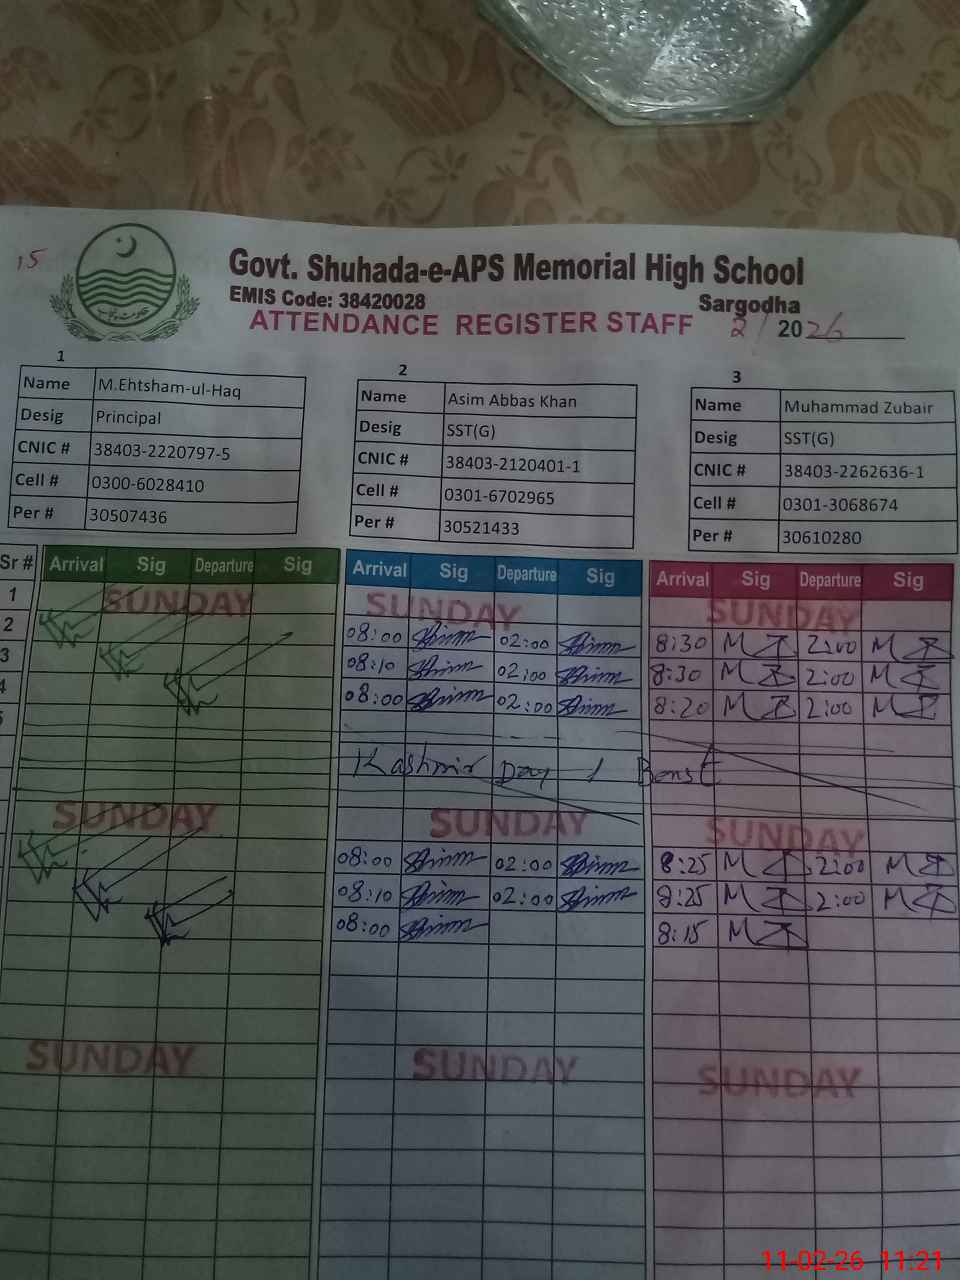 15
Govt. Shuhada-e-APS Memorial High School
EMIS Code: 38420028 Sargodha
ATTENDANCE REGISTER STAFF 2/ 2026
1 2 3
Name M.Ehtsham-ul-Haq
Desig Principal
CNIC # 38403-2220797-5
Cell # 0300-6028410
Per # 30507436
Name Asim Abbas Khan
Desig SST(G)
CNIC # 38403-2120401-1
Cell # 0301-6702965
Per # 30521433
Name Muhammad Zubair
Desig SST(G)
CNIC # 38403-2262636-1
Cell # 0301-3068674
Per # 30610280
Sr # Arrival Sig Departure Sig Arrival Sig Departure Sig Arrival Sig Departure Sig
1 SUNDAY SUNDAY SUNDAY
2 08:00 02:00 8:30 2:00
3 08:10 02:00 8:30 2:00
4 08:00 02:00 8:20 2:00
5
Kashmir Day
SUNDAY SUNDAY SUNDAY
08:00 02:00 8:25 2:00
08:10 02:00 8:25 2:00
08:00 8:15
SUNDAY SUNDAY SUNDAY
11-02-26 11:21